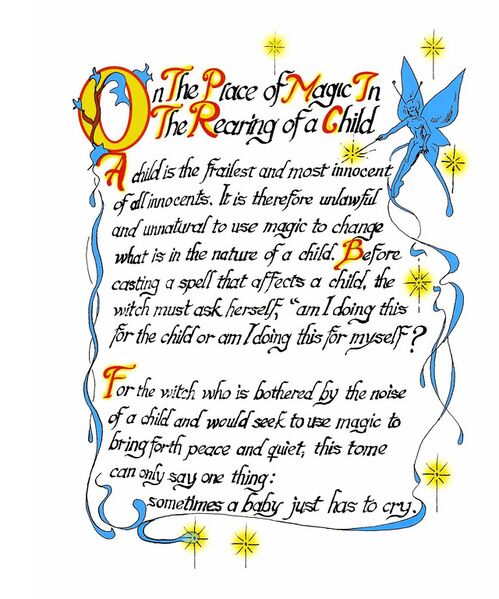 On The Place of Magic In
The Rearing of a Child
A child is the frailest and most innocent
of all innocents. It is therefore unlawful
and unnatural to use magic to change
what is in the nature of a child. Before
casting a spell that affects a child, the
witch must ask herself, "am I doing this
for the child or am I doing this for myself?
For the witch who is bothered by the noise
of a child and would seek to use magic to
bring forth peace and quiet, this tome
can only say one thing:
sometimes a baby just has to cry.